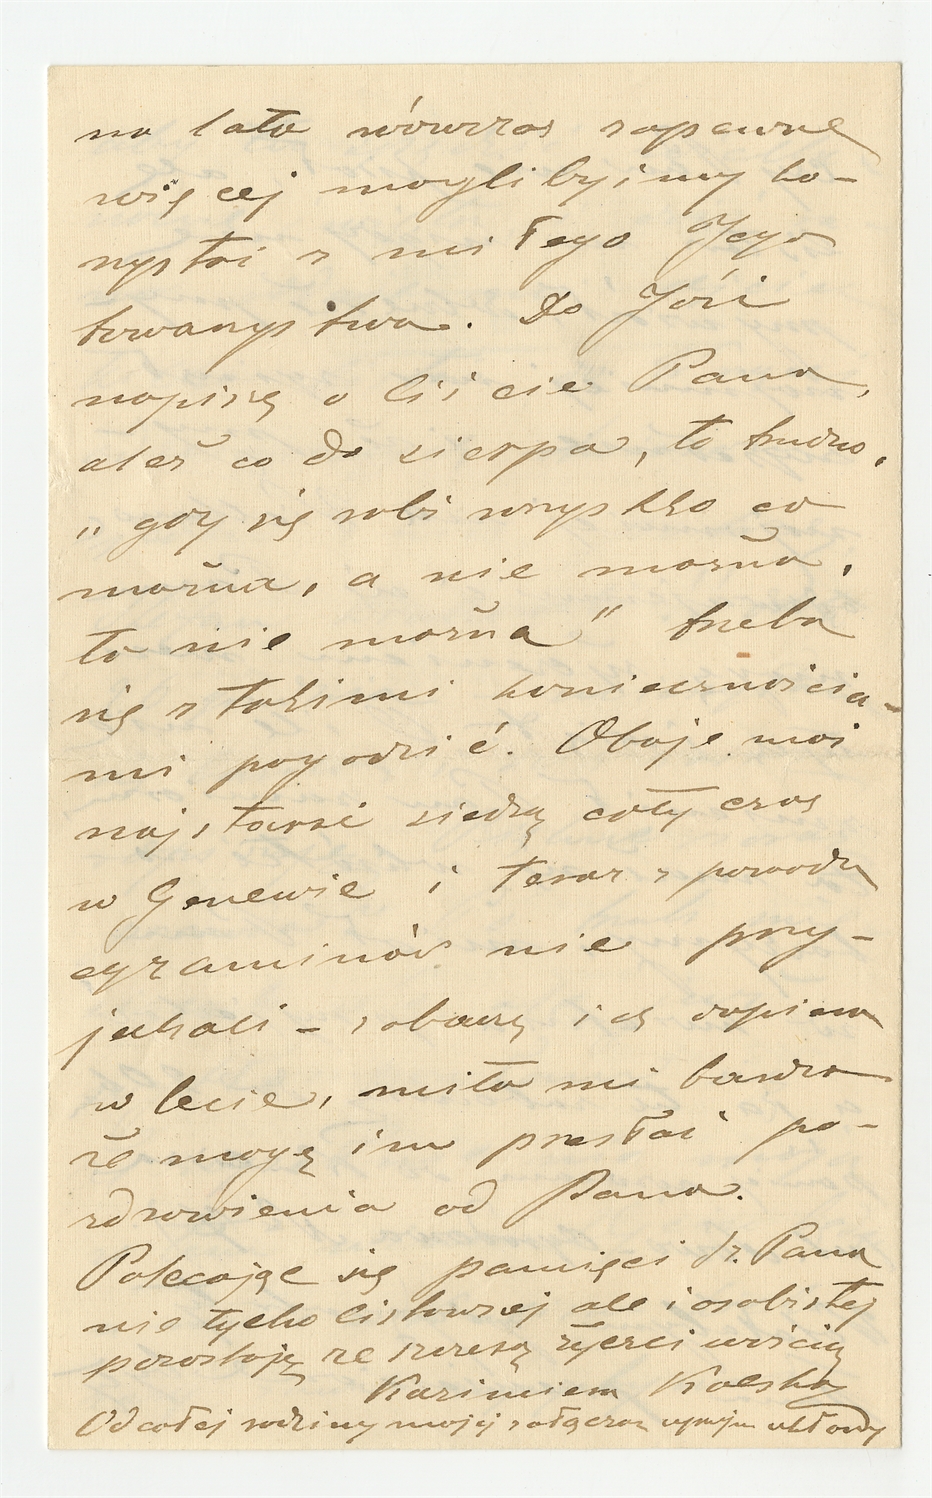 na lato wówczas zapewne
więcej moglibyśmy ko-
rzystać z miłego Jego
towarzystwa. Do Józi
napiszę o liście Pana,
ależ co do sierpa, to trudno,
„gdy się robi wszystko co
można, a nie można,
to nie można" trzeba
się z takimi koniecznościa-
mi pogodzić. Oboje moi
najstarsi siedzą cały czas
w Genewie i teraz z powodu
egzaminów nie przy-
jechali – zobaczę ich dopiero
w lecie, miło mi bardzo
że mogę im przesłać po-
zdrowienia od Pana.
Polecając się pamięci Sz. Pana
nie tylko listownej ale i osobistej
pozostaję ze szczerą życzliwością
Kazimiera
Od całej rodziny mojej załączam ukłony